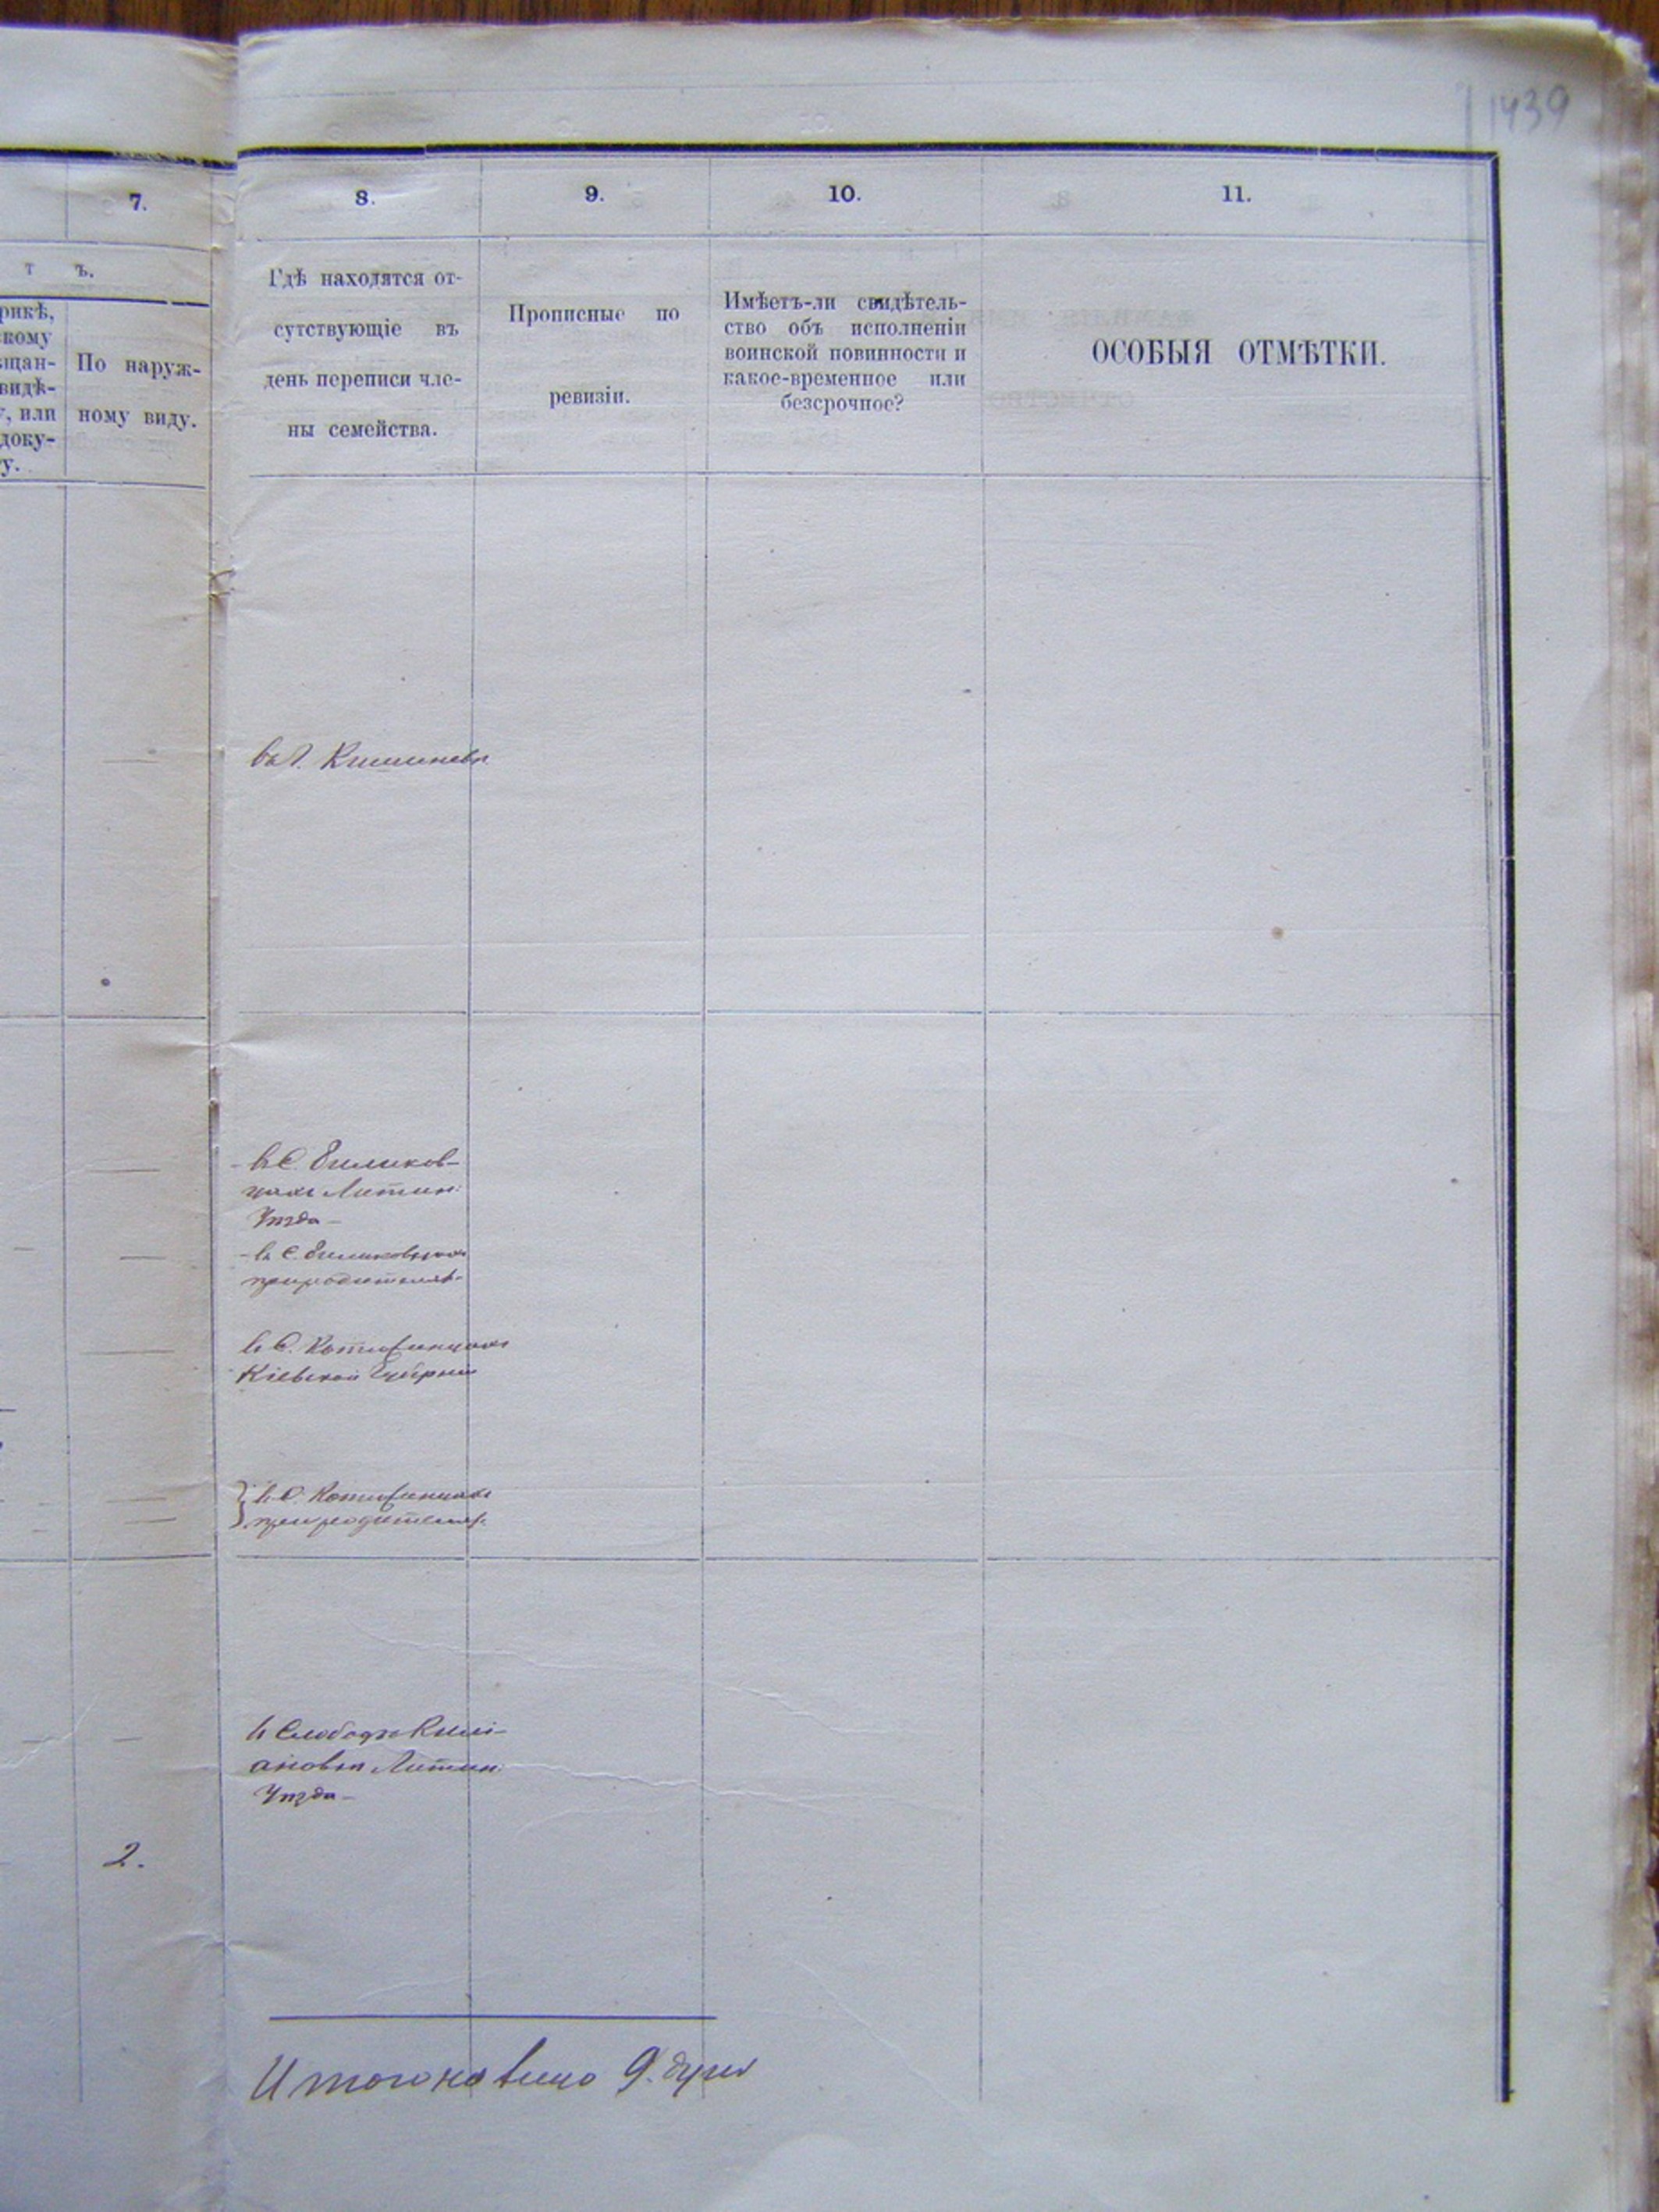 1439
7.
8.
9.
10.
11.
т ъ.
рикѣ,
скому
щан-
видѣ-
у, или
доку-
у.
По наруж-
ному виду.
Гдѣ находятся от-
сутствующіе въ
день переписи чле-
ны семейства.
Прописные по
ревизіи.
Имѣетъ-ли свидѣтель-
ство объ исполненіи
воинской повинности и
какое-временное или
безсрочное?
ОСОБЫЯ ОТМѢТКИ.
въ г. Кишиневѣ
въ С.
Литин:
Уѣзда
въ С.
при родителяхъ
въ С.
Кіевской Губерніи
въ С.
при родителяхъ
въ Слободѣ Килі-
ановкѣ Литин:
Уѣзда
2.
Итого на лицо 9. душъ